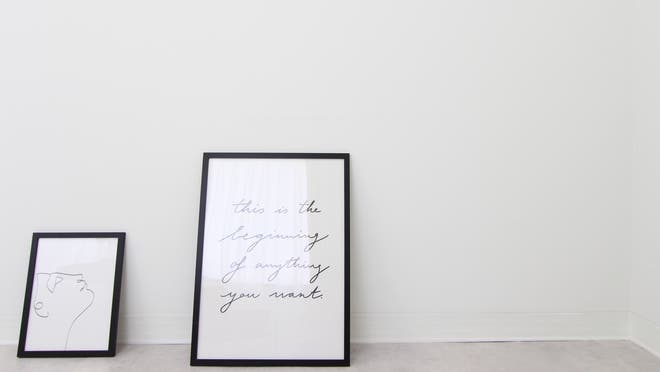 this is the
beginning
of anything
you want.